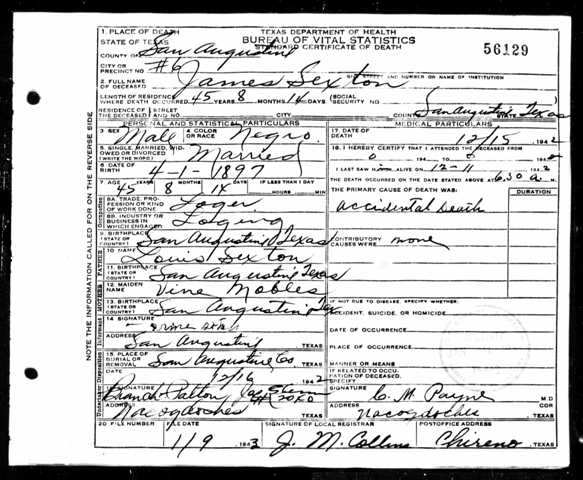 1. PLACE OF DEATH
STATE OF TEXAS
COUNTY OF San Augustine
CITY OR PRECINCT NO. #6
TEXAS DEPARTMENT OF HEALTH
BUREAU OF VITAL STATISTICS
STANDARD CERTIFICATE OF DEATH
56129
STREET AND NUMBER OR NAME OF INSTITUTION
2. FULL NAME OF DECEASED James Sexton
LENGTH OF RESIDENCE WHERE DEATH OCCURRED 45 YEARS 8 MONTHS 14 DAYS
SOCIAL SECURITY NO.
RESIDENCE OF THE DECEASED STREET AND NO. CITY COUNTY San Augustine STATE Texas
PERSONAL AND STATISTICAL PARTICULARS
MEDICAL PARTICULARS
3. SEX Male 4. COLOR OR RACE Negro
5. SINGLE, MARRIED, WIDOWED OR DIVORCED (WRITE THE WORD) Married
6. DATE OF BIRTH 4-1-1897
7. AGE 45 YEARS 8 MONTHS 14 DAYS IF LESS THAN 1 DAY HOURS MIN
8A. TRADE, PROFESSION OR KIND OF WORK DONE Loger
8B. INDUSTRY OR BUSINESS IN WHICH ENGAGED Loging
9. BIRTHPLACE (STATE OR COUNTRY) San Augustine Texas
10. NAME Louis Sexton
11. BIRTHPLACE (STATE OR COUNTRY) San Augustine Texas
12. MAIDEN NAME Vine Mobles
13. BIRTHPLACE (STATE OR COUNTRY) San Augustine Tex
14. SIGNATURE
ADDRESS San Augustine TEXAS
15. PLACE OF BURIAL OR REMOVAL San Augustine Co TEXAS
DATE 12/16 1942
16. SIGNATURE Branch-Patton
ADDRESS Nacogdoches TEXAS
17. DATE OF DEATH 12/15 1942
18. I HEREBY CERTIFY THAT I ATTENDED THE DECEASED FROM
0 194 0 194
I LAST SAW ALIVE ON 12-11 1942
THE DEATH OCCURRED ON THE DATE STATED ABOVE AT 6:30 a M
THE PRIMARY CAUSE OF DEATH WAS: DURATION
accidental death
CONTRIBUTORY CAUSES WERE none
IF NOT DUE TO DISEASE, SPECIFY WHETHER:
ACCIDENT, SUICIDE, OR HOMICIDE
DATE OF OCCURRENCE
PLACE OF OCCURRENCE
MANNER OR MEANS
IF RELATED TO OCCUPATION OF DECEASED, SPECIFY
SIGNATURE C. M. Payne M D COR
ADDRESS Nacogdoches TEXAS
20. FILE NUMBER FILE DATE 1/9 1943
SIGNATURE OF LOCAL REGISTRAR J. M. Collins
POSTOFFICE ADDRESS Chireno, TEXAS
NOTE THE INFORMATION CALLED FOR ON THE REVERSE SIDE